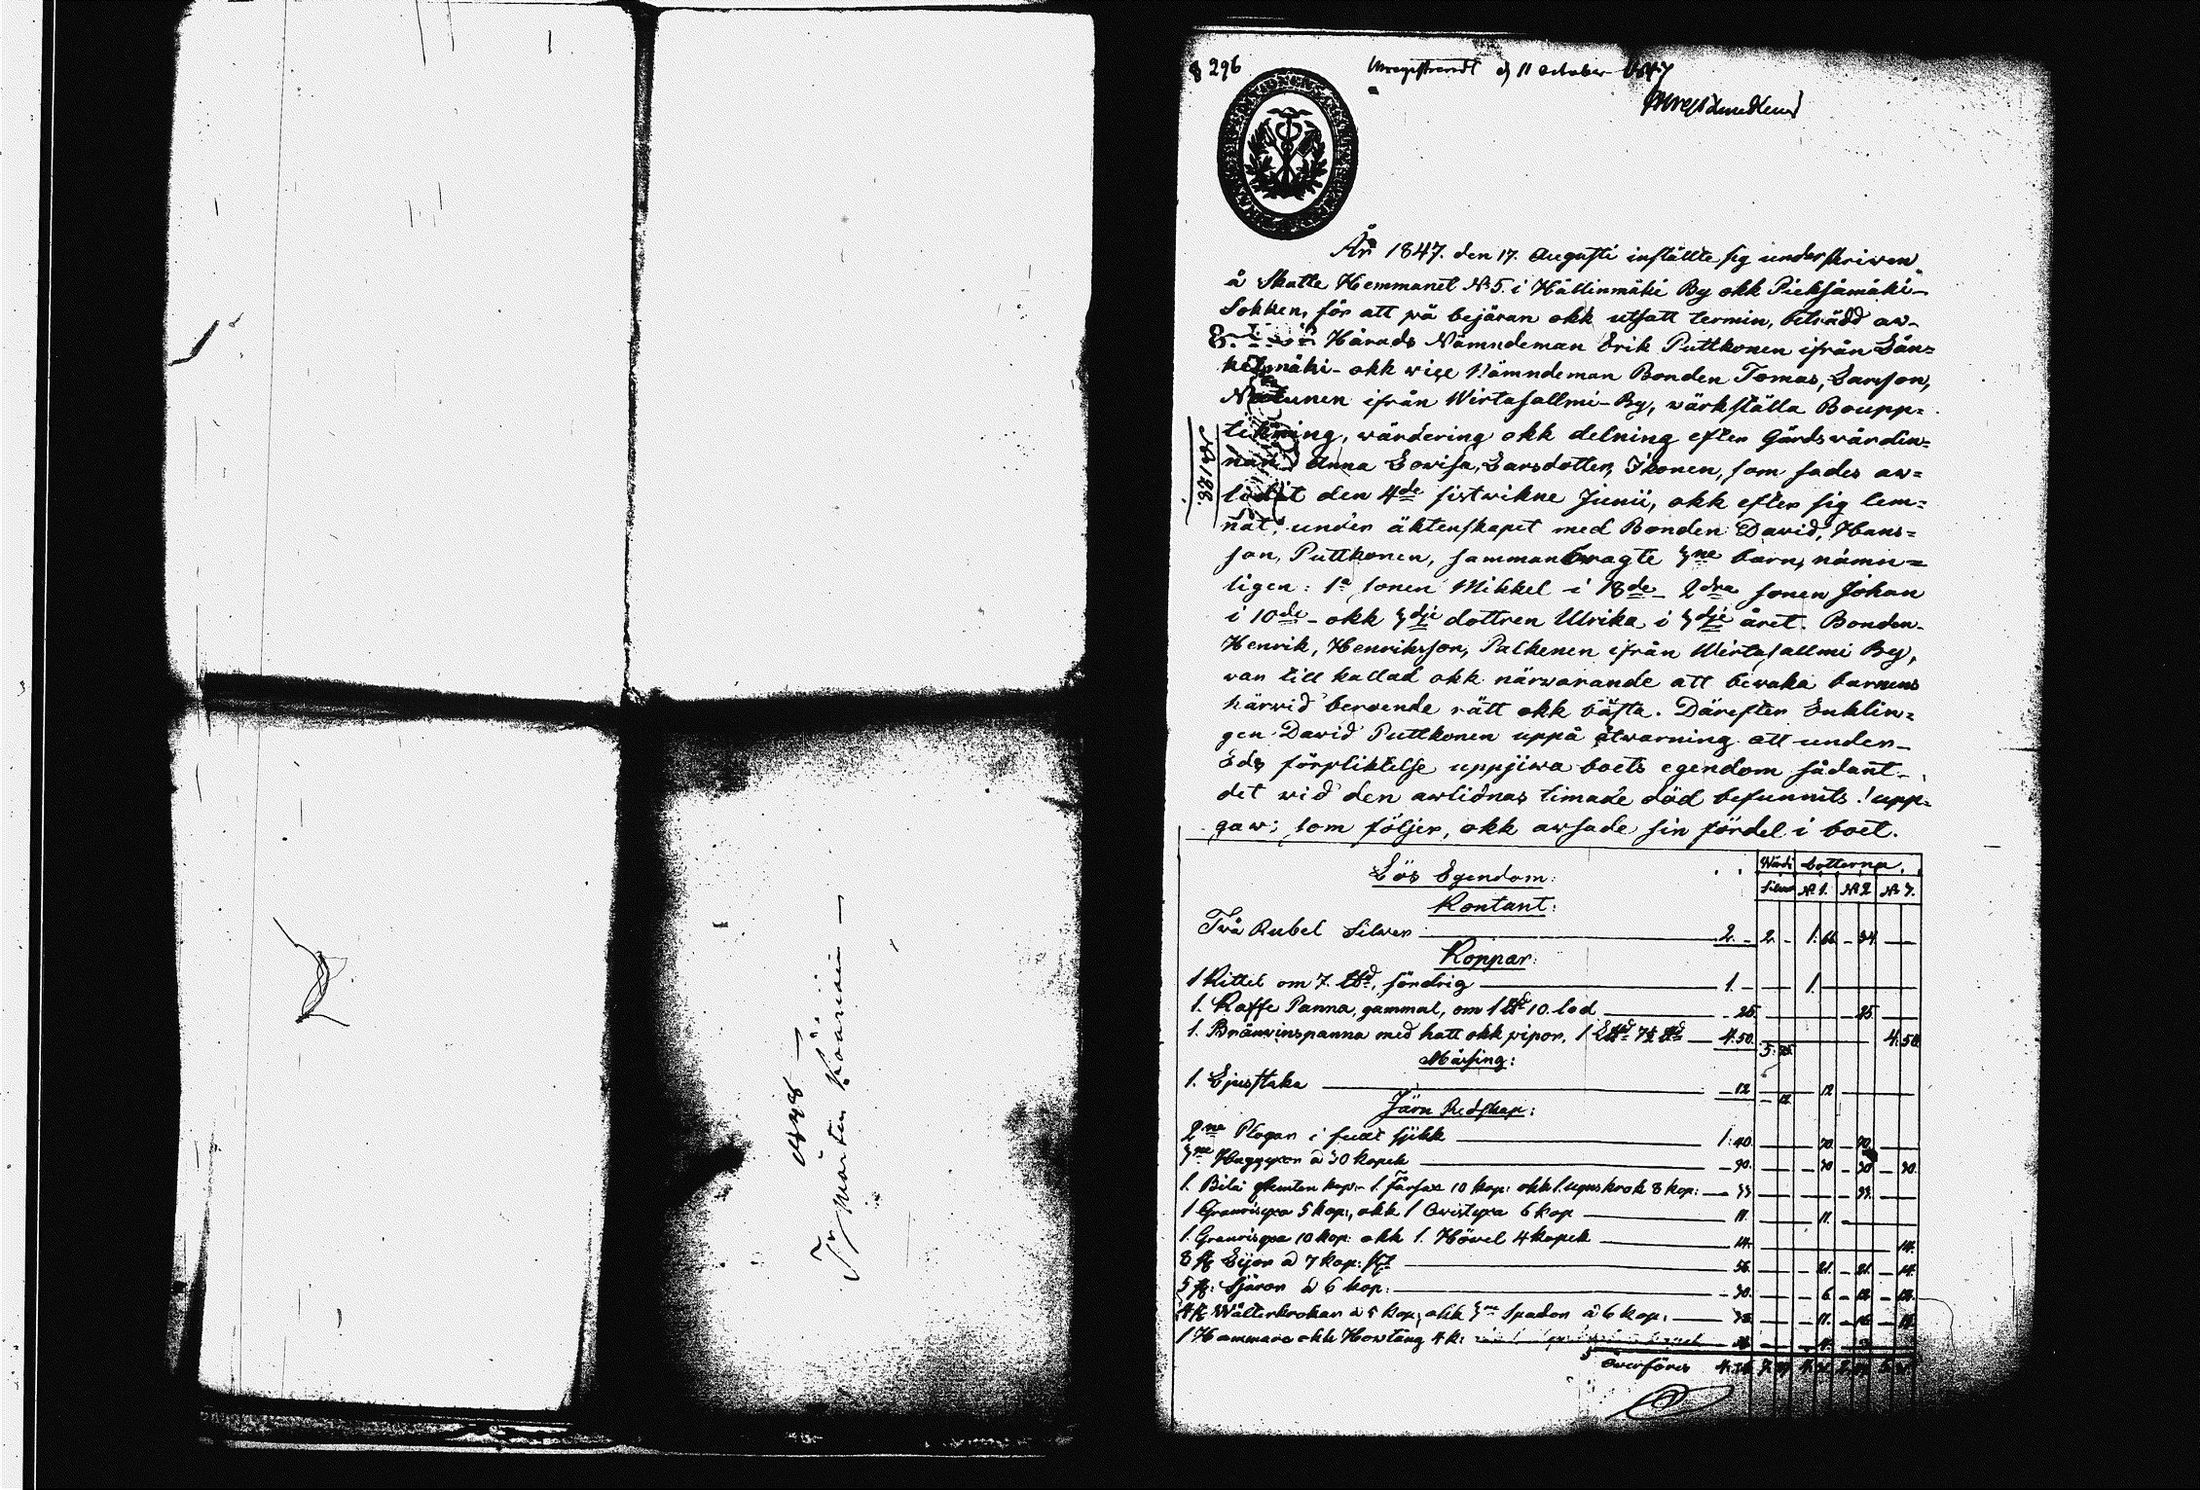 1848
8 296
d 11 October 1847
År 1847. den 17. Augusti instälte sig underskriwen
å Skatte Hemmanet N:5. i Hällinmäki By okk Pieksämäki
Sokken, för att på bejäran okk utsatt termin, biträdd aw
Härads Nämndeman Erik Puttkonen ifrån Län=
kelmäki okk wiçe Nämndeman Bonden Tomas, Larsson,
ifrån Wirtasallmi By, wärkställa Boupp=
tekning, wärdering okk delning efter Gårdswärdin=
nan Anna Lowisa, Larsdotter, Ikonen, som sades aw=
lidit den 4de sistwikne Junii, okk efter sig lem=
nat, under äktenskapet med Bonden David, Hans=
son, Puttkonen, sammanbragte 3ne barn, nämn=
ligen: 1a sonen Mikkel i 18de 2dra sonen Johan
i 10de okk 3dje dottren Ulrika i 3dje året. Bonden
Henrik, Henriksson, Palkenen ifrån Wirtasallmi By,
var till kallad okk närwarande att bewaka barnens
härwid beroende rätt okk bästa. Därefter Enklin=
gen David Puttkonen uppå åtwarning att under
Eds förpliktelse uppjiwa boets egendom sådant
det wid den awlidnas timade död befunnits! upp=
gaw; som följer, okk awsade sin fördel i boet.
Wärde Lotterna.
Silver N:1. N:2 N:3.
Lös Egendom:
Kontant:
Två Rubel Silver 2. 2. 1. 66 34
Koppar:
1 Kittel om 7. söndrig 1. 1.
1. Kaffe Panna, gammal, om 1 10. lod 25. 25.
1. Bränwinspanna med hatt okk pipor, 4.50. 4.50
Mässing:
1. Ljusstaka 12 12
Järn Redskap:
2ne Plogar i fullt skikk 1.40. 70. 70
3ne Huggyxor à 30 kopek 90. 30 30 30.
1. Bila 1. 10 kop: okk 1. ugnskrok 8 kop: 33 33.
1 Granrisyxa 5 kop:, okk 1 Qvistyxa 6 kop 11. 11.
1. Granrisyxa 10 kop: okk 1. Höwel 4 kopek 14. 14.
8 st Lijor à 7 kop: 56. 21. 21. 14
5 st: Skäror à 6 kop: 30. 6 12 12.
okk 3ne Spador à 6 kop:
1 Hammare okk Howtång 4 k:
Överföres